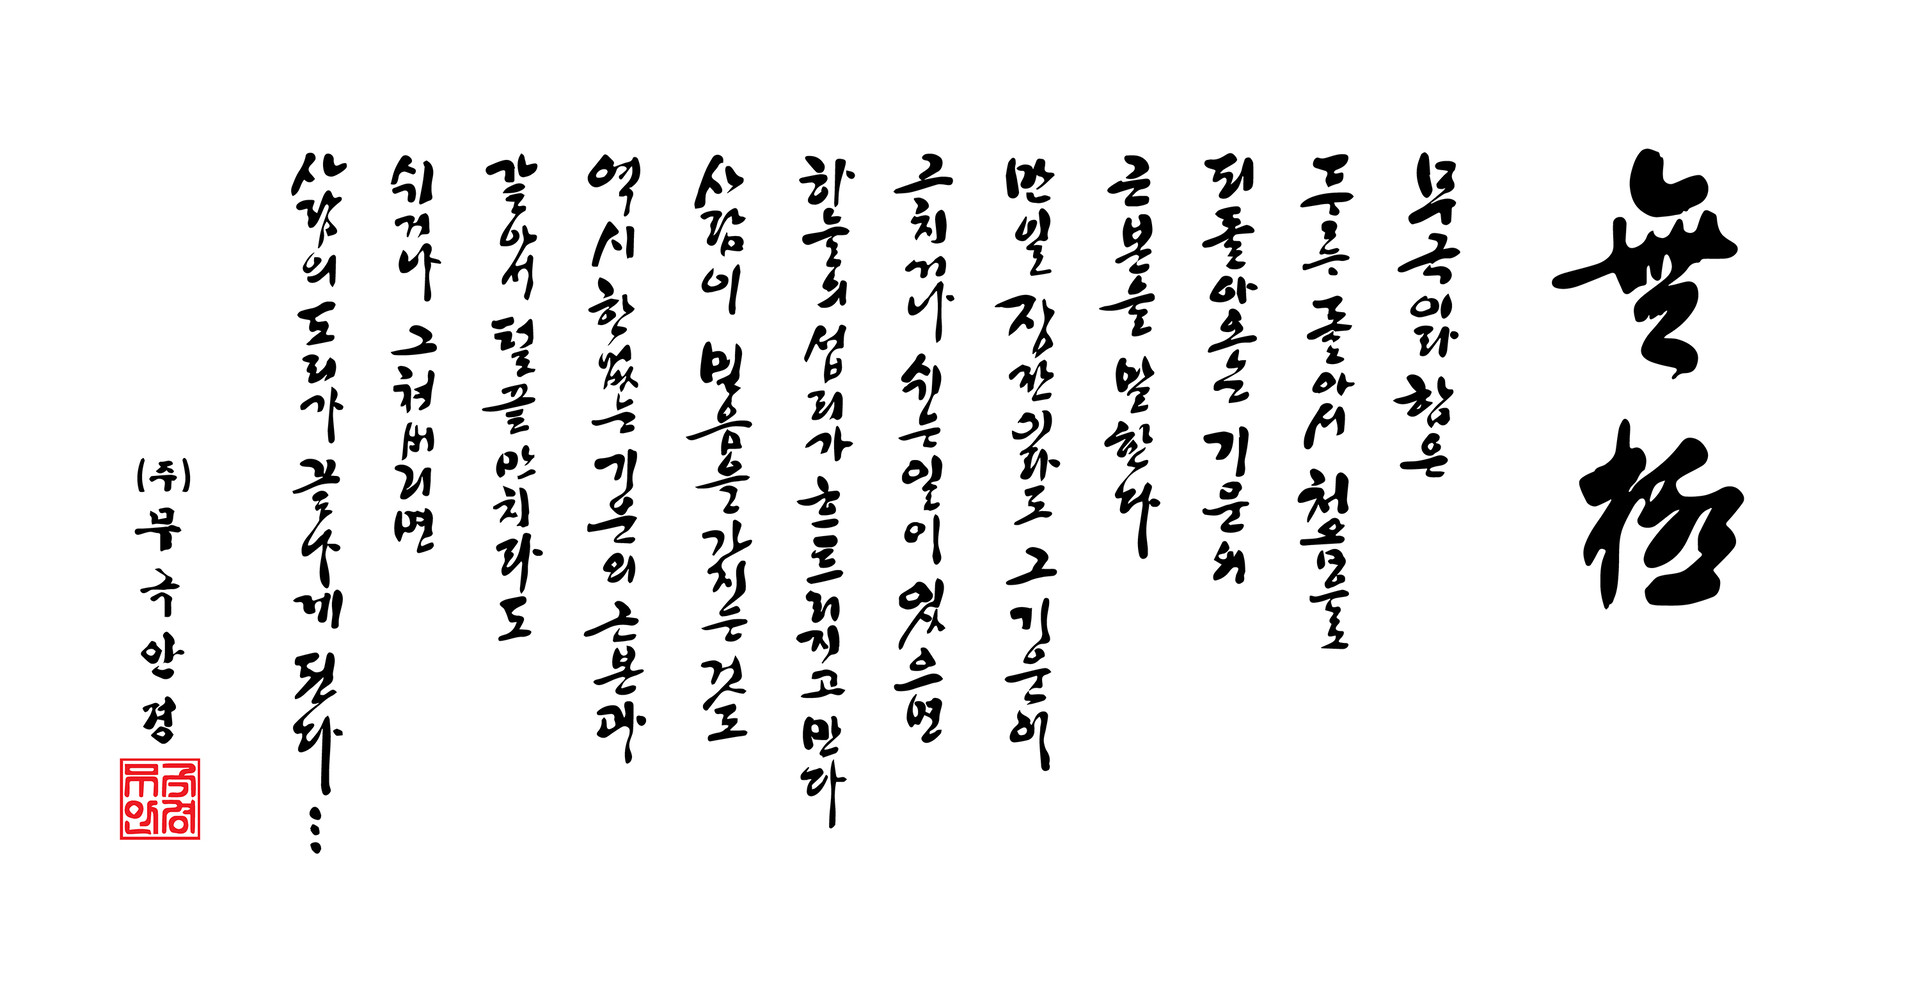 無極
무극이라 함은
두루 돌아서 처음으로
되돌아오는 기운의
근본을 말한다
만일 잠깐이라도 그 기운이
그치거나 쉬는 일이 있으면
하늘의 섭리가 흐트러지고 만다
사람이 믿음을 가지는 것도
역시 한없는 기운의 근본과
같아서 털끝만치라도
쉬거나 그쳐버리면
사람의 도리가 끝나게 된다…
(주)무극안경
무극안경